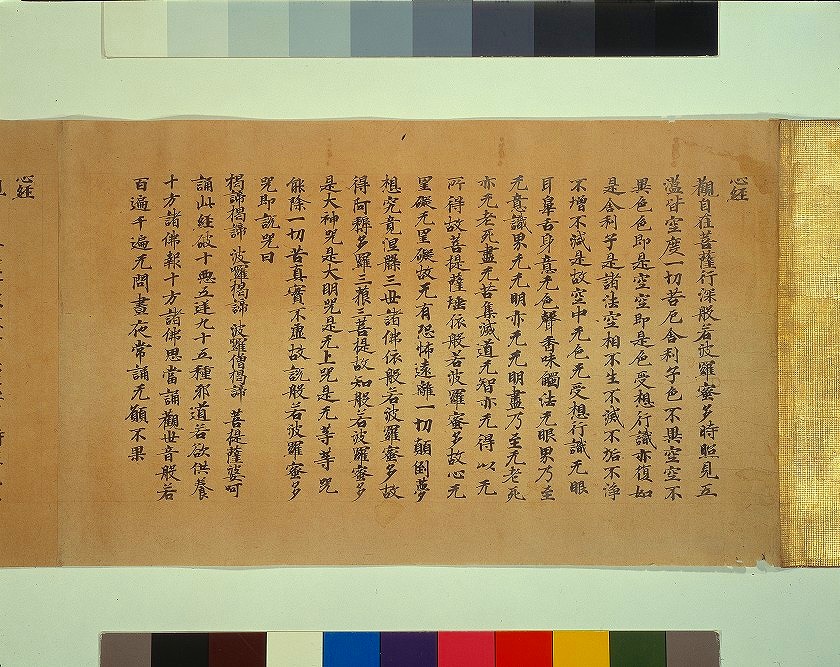 心経
觀自在菩薩行深般若波羅蜜多時照見五
蘊皆空度一切苦厄舍利子色不異空空不
異色色即是空空即是色受想行識亦復如
是舍利子是諸法空相不生不滅不垢不淨
不增不減是故空中无色无受想行識无眼
耳鼻舌身意无色聲香味觸法无眼界乃至
无意識界无无明亦无无明盡乃至无老死
亦无老死盡无苦集滅道无智亦无得以无
所得故菩提薩埵依般若波羅蜜多故心无
罣礙无罣礙故无有恐怖遠離一切顛倒夢
想究竟涅槃三世諸佛依般若波羅蜜多故
得阿耨多羅三藐三菩提故知般若波羅蜜多
是大神咒是大明咒是无上咒是无等等咒
能除一切苦真實不虛故說般若波羅蜜多
咒即說咒曰
揭諦揭諦 波羅揭諦 波羅僧揭諦 菩提薩婆呵
誦此經破十惡五逆九十五種邪道若欲供養
十方諸佛報十方諸佛恩當誦觀世音般若
百遍千遍无問晝夜常誦无願不果
心経